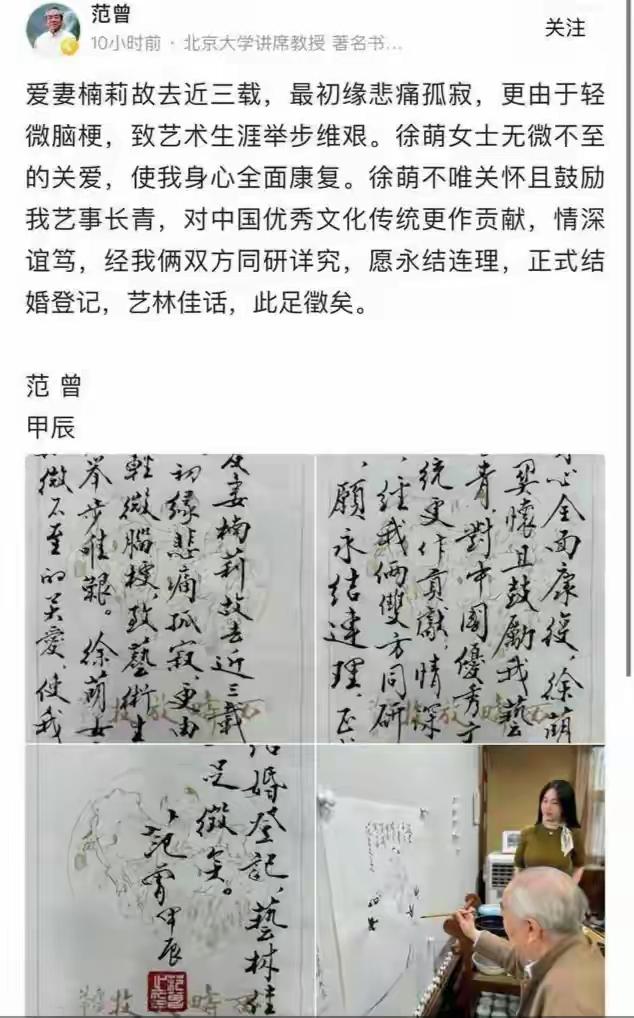 范曾
关注
10小时前 · 北京大学讲席教授 著名书...
爱妻楠莉故去近三载，最初缘悲痛孤寂，更由于轻
微脑梗，致艺术生涯举步维艰。徐萌女士无微不至
的关爱，使我身心全面康复。徐萌不唯关怀且鼓励
我艺事长青，对中国优秀文化传统更作贡献，情深
谊笃，经我俩双方同研详究，愿永结连理，正式结
婚登记，艺林佳话，此足徵矣。
范 曾
甲辰
妻楠莉故去近三载
初缘悲痛孤寂，更由
輕微腦梗，致藝術生
举步维艱。徐萌女
微不至的关爱，使我
心全面康復。徐萌
関懷且鼓勵我藝
青，對中國優秀文
统更作貢獻，情深
經我倆雙方同研
願永结連理，正
结婚登記，藝林佳
足徵矣。
范曾甲辰